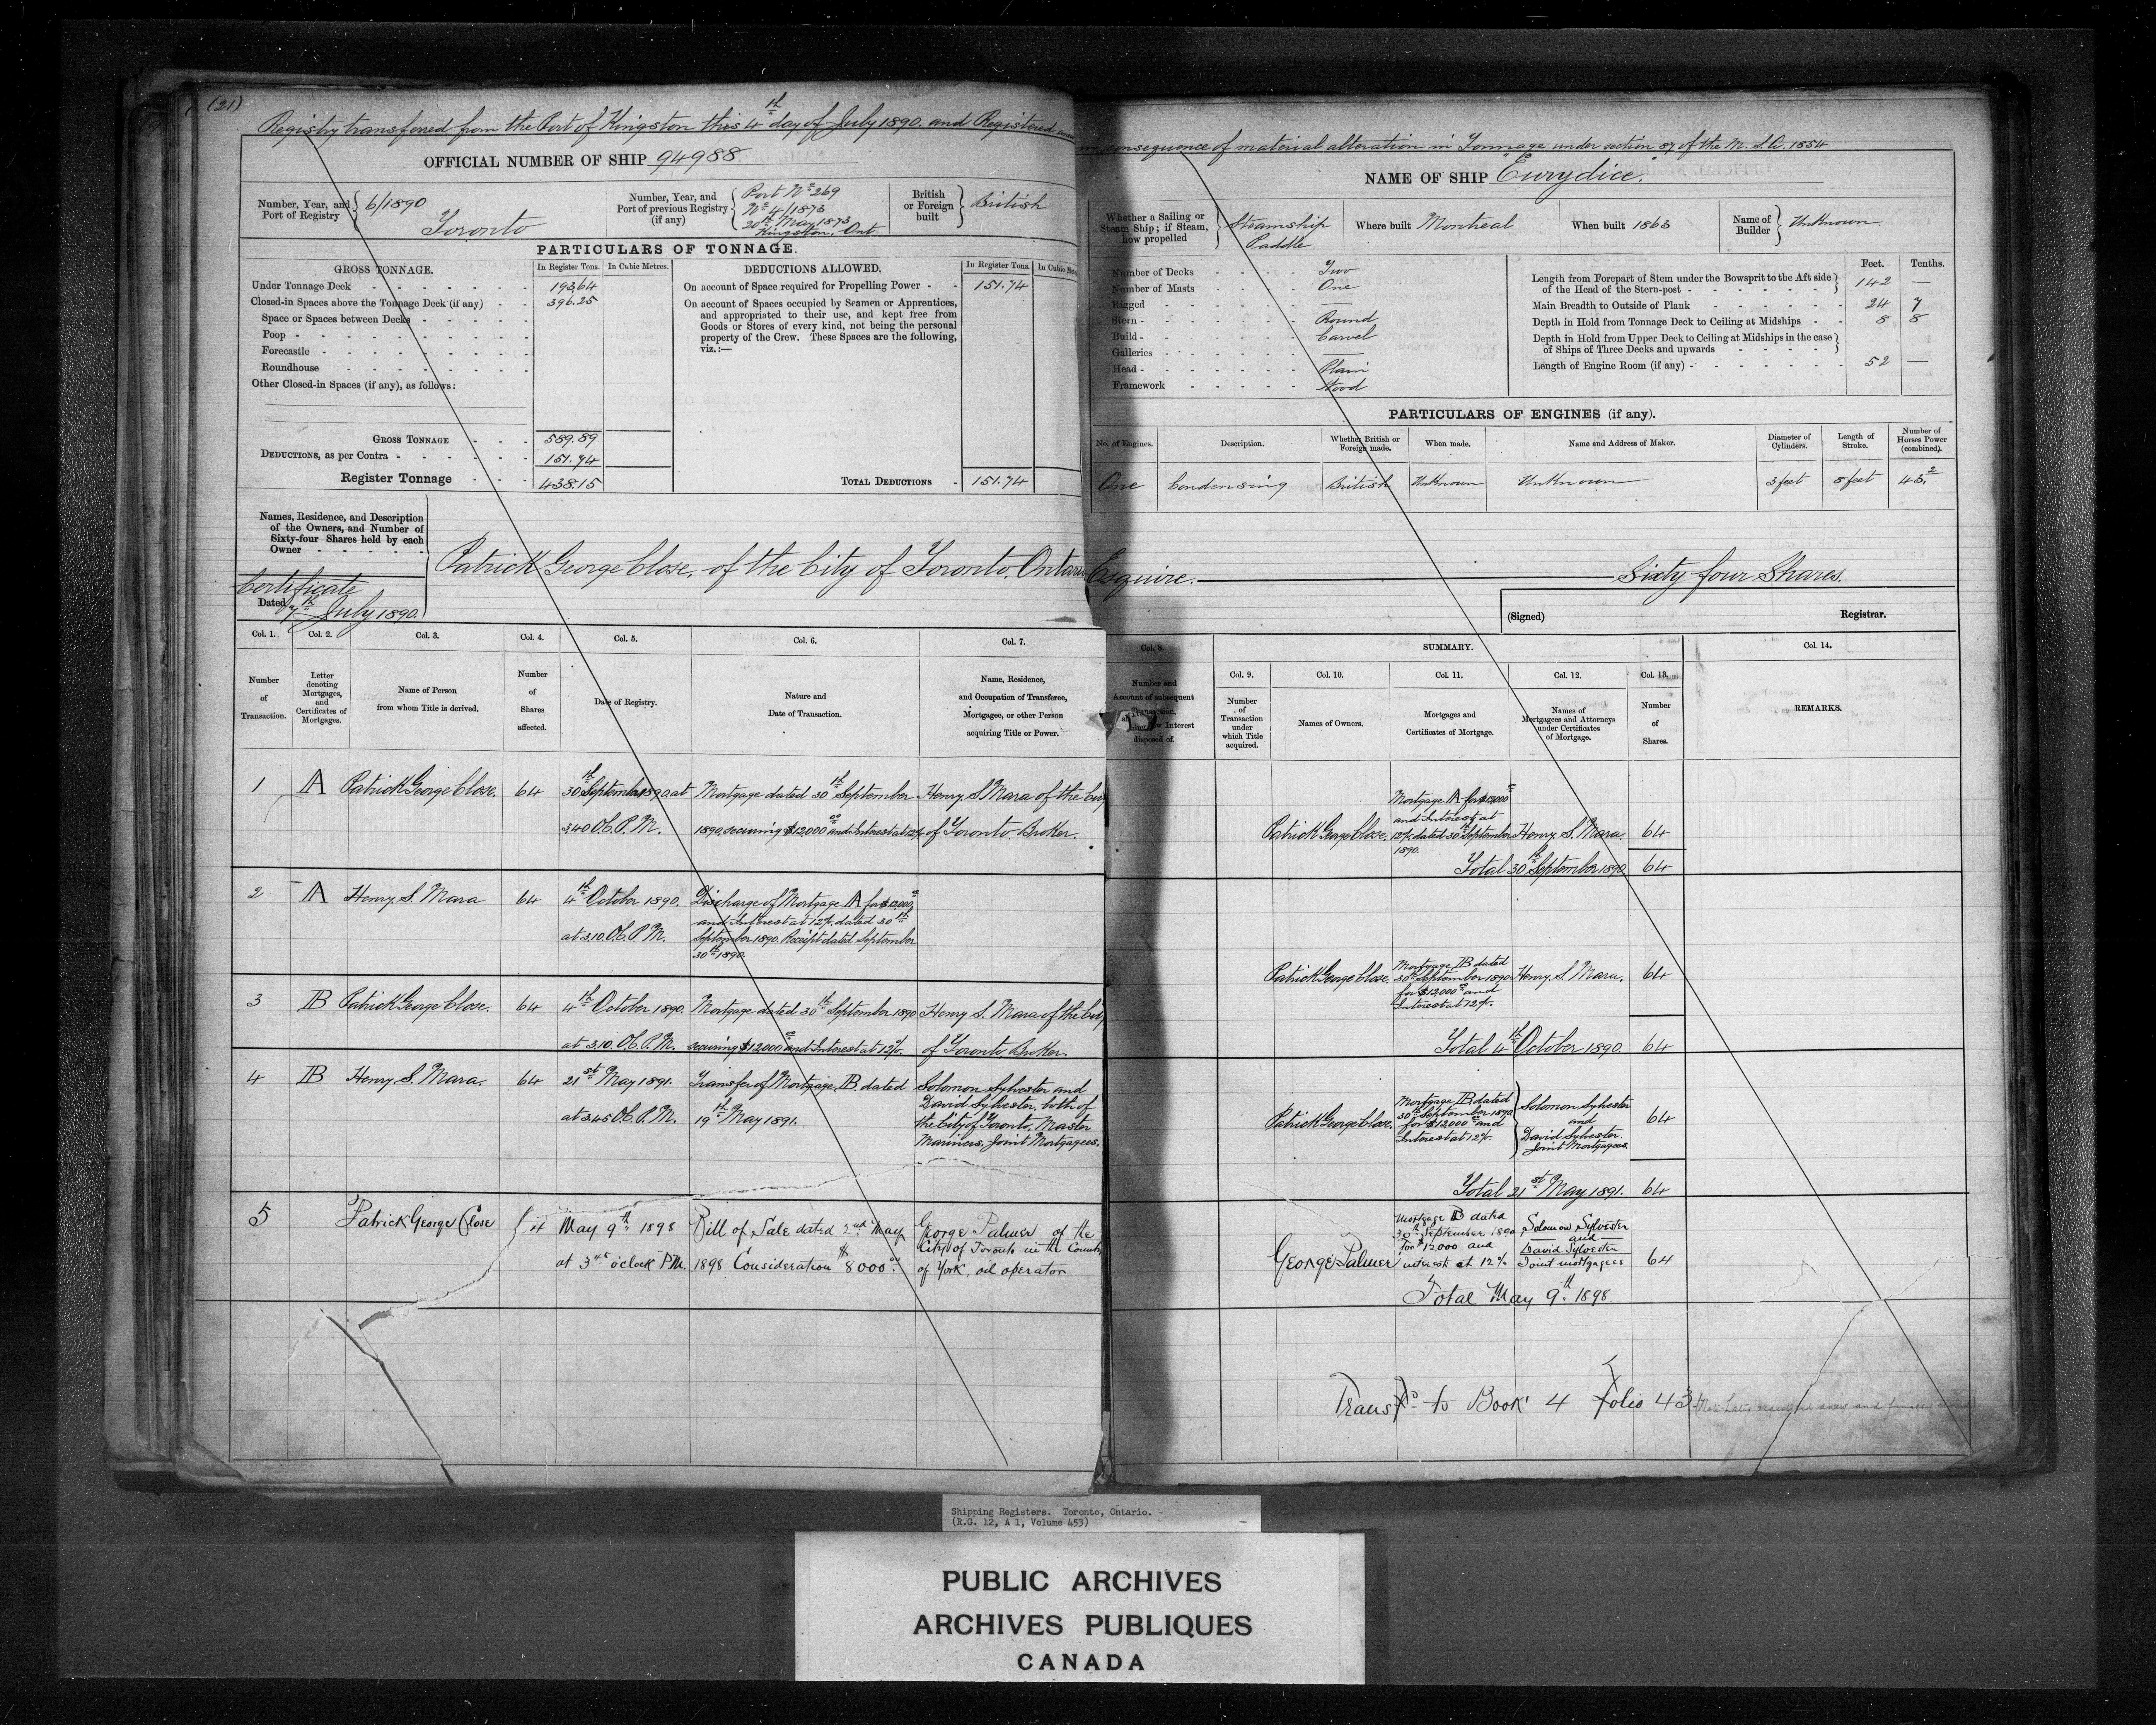 (21)
Registry transferred from the Port of Kingston this 4th day of July 1890. and Registered anew
in consequence of material alteration in Tonnage under section 87 of the M. S. A. 1854
OFFICIAL NUMBER OF SHIP 94988
NAME OF SHIP "Eurydice."
Number, Year, and Port of Registry 6/1890 Toronto
Number, Year, and Port of previous Registry (if any) Port No 269
No 4/1873
20th May 1873
Kingston, Ont
British or Foreign built British
PARTICULARS OF TONNAGE.
GROSS TONNAGE. In Register Tons. In Cubic Metres.
Under Tonnage Deck 193.64
Closed-in Spaces above the Tonnage Deck (if any) 396.25
Space or Spaces between Decks
Poop
Forecastle
Roundhouse
Other Closed-in Spaces (if any), as follows:
GROSS TONNAGE 589.89
DEDUCTIONS, as per Contra 151.74
Register Tonnage 438.15
DEDUCTIONS ALLOWED. In Register Tons. In Cubic
On account of Space required for Propelling Power 151.74
On account of Spaces occupied by Seamen or Apprentices,
and appropriated to their use, and kept free from
Goods or Stores of every kind, not being the personal
property of the Crew. These Spaces are the following,
viz.:—
TOTAL DEDUCTIONS 151.74
Whether a Sailing or Steam Ship; if Steam, how propelled Steamship Paddle
Where built Montreal
When built 1863
Name of Builder Unknown
Number of Decks Two
Number of Masts One
Rigged —
Stern Round
Build Carvel
Galleries —
Head Plain
Framework Wood
Feet. Tenths.
Length from Forepart of Stem under the Bowsprit to the Aft side
of the Head of the Stern-post 142 —
Main Breadth to Outside of Plank 24 7
Depth in Hold from Tonnage Deck to Ceiling at Midships 8 8
Depth in Hold from Upper Deck to Ceiling at Midships in the case
of Ships of Three Decks and upwards
Length of Engine Room (if any) 52 —
PARTICULARS OF ENGINES (if any).
No. of Engines. Description. Whether British or Foreign made. When made. Name and Address of Maker. Diameter of Cylinders. Length of Stroke. Number of Horses Power (combined).
One Condensing British Unknown Unknown 3 feet 8 feet 43.2
Names, Residence, and Description
of the Owners, and Number of
Sixty-four Shares held by each
Owner
Patrick George Close, of the City of Toronto, Ontario Esquire. Sixty four Shares.
Certificate
Dated 7th July 1890.
(Signed) Registrar.
Col. 1. Col. 2. Col. 3. Col. 4. Col. 5. Col. 6. Col. 7.
Number of Transaction.
Letter denoting Mortgages, and Certificates of Mortgages.
Name of Person from whom Title is derived.
Number of Shares affected.
Date of Registry.
Nature and Date of Transaction.
Name, Residence, and Occupation of Transferee, Mortgagee, or other Person acquiring Title or Power.
Col. 8. SUMMARY. Col. 14.
Number and Account of subsequent Transaction, Interest disposed of.
Col. 9. Col. 10. Col. 11. Col. 12. Col. 13.
Number of Transaction under which Title acquired.
Names of Owners.
Mortgages and Certificates of Mortgage.
Names of Mortgagees and Attorneys under Certificates of Mortgage.
Number of Shares.
REMARKS.
1 A Patrick George Close. 64 30th September 1890 at Mortgage dated 30th September Henry S Mara of the City
3.40 O.C. P.M. 1890, securing $12,000 00 and Interest at 12% of Toronto. Broker.
Mortgage A for $12000 00
and Interest at
Patrick George Close. 12% dated 30th September Henry S. Mara. 64
1890.
Total 30th September 1890 64
2 A Henry S. Mara 64 4th October 1890. Discharge of Mortgage A for $12,000
and Interest at 12% dated 30th
at 3.10. O.C. P.M. September 1890. Receipt dated September
30th 1890.
Patrick George Close. Mortgage B dated
30th September 1890 Henry S. Mara. 64
for $12,000 00 and
Interest at 12%.
3 B Patrick George Close. 64 4th October 1890. Mortgage dated 30th September 1890 Henry S. Mara of the City
at 3.10. O.C. P.M. securing $12000 00 and Interest at 12%. of Toronto. Broker.
Total 4th October 1890. 64
4 B Henry S. Mara. 64 21st May 1891. Transfer of Mortgage B dated Solomon Sylvester and
David Sylvester, both of
at 3.45 O.C. P.M. 19th May 1891. the City of Toronto. Master
Mariners. Joint Mortgagees.
Mortgage B dated
30th September 1890 Solomon Sylvester
Patrick George Close. for $12000 00 and and 64
Interest at 12%. David Sylvester.
Joint Mortgagees.
Total 21st May 1891. 64
5 Patrick George Close 64 May 9th 1898 Bill of Sale dated 2nd May George Palmer of the
City of Toronto in the County
at 3 o'clock P.M. 1898 Consideration $8000 00 of York, oil operator
Mortgage B dated
30th September 1890 Solomon Sylvester
for $12000 and and
David Sylvester
George Palmer interest at 12% Joint mortgagees 64
Total May 9th 1898
Transfd to Book 4 folio 43
Shipping Registers. Toronto, Ontario.
(R.G. 12, A 1, Volume 453)
PUBLIC ARCHIVES
ARCHIVES PUBLIQUES
CANADA